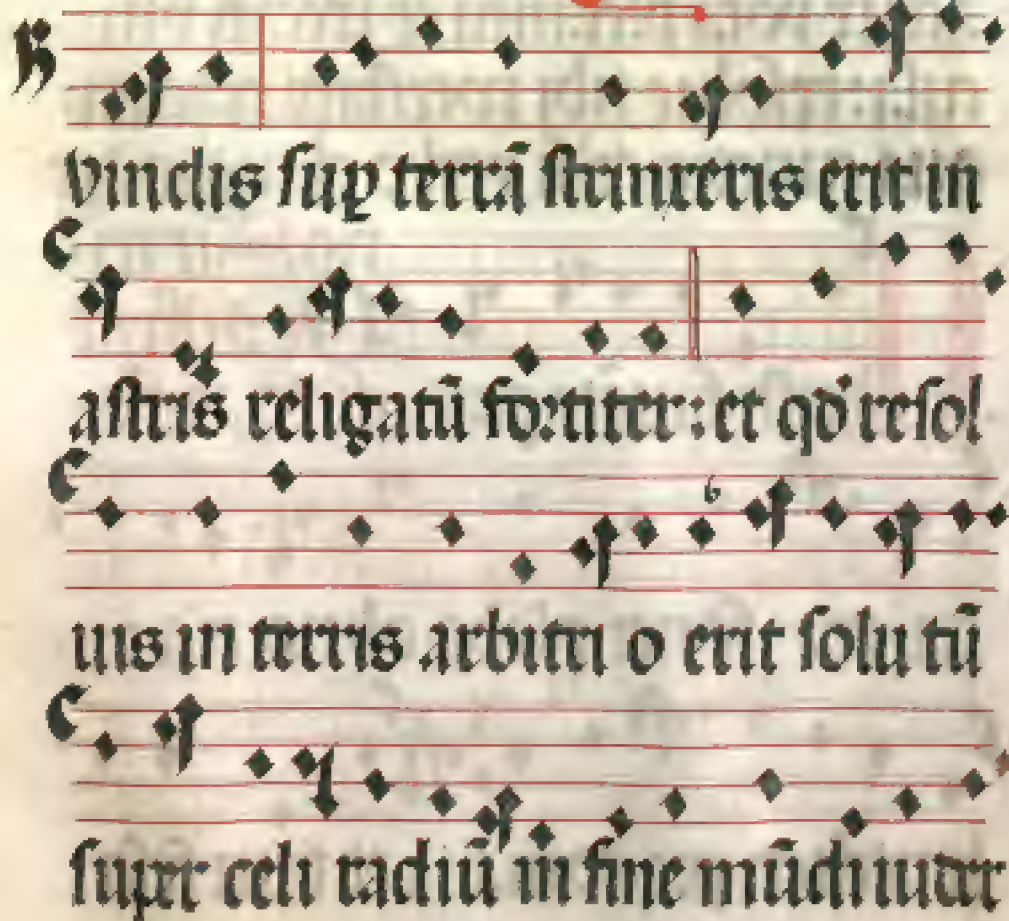 vinclis ſup̱ terrā ſtrinxeris erit in
aſtris religatū fortiter: et qd̛ reſol
uis in terris arbitri o erit ſolu tū
ſuper celi radiū in fine mūdi iudex